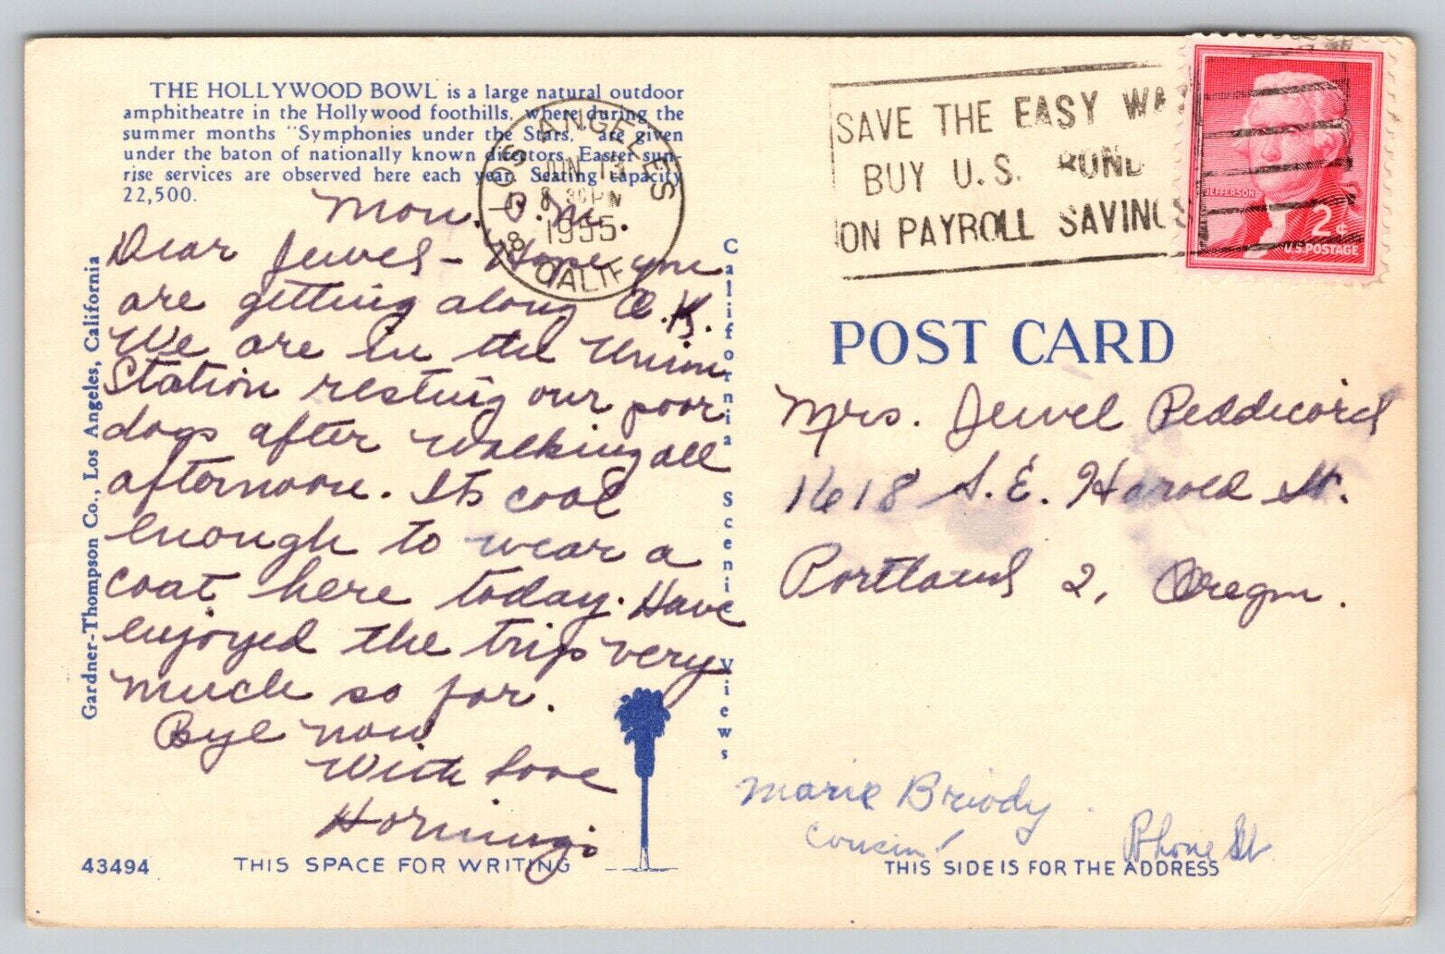 THE HOLLYWOOD BOWL is a large natural outdoor
amphitheatre in the Hollywood foothills, where during the
summer months "Symphonies under the Stars," are given
under the baton of nationally known directors. Easter sun-
rise services are observed here each year. Seating capacity
22,500.
LOS ANGELES
JUN 13
8 30 PM
1955
CALIF
SAVE THE EASY WAY
BUY U.S. BOND
ON PAYROLL SAVINGS
JEFFERSON
2¢
U.S. POSTAGE
Mon. P.M.
Dear Jewel - Hope you
are getting along O.K.
We are in the Union
Station resting our poor
dogs after walking all
afternoon. Its cool
enough to wear a
coat here today. Have
enjoyed the trip very
much so far.
Bye now
With love
Gardner-Thompson Co., Los Angeles, California
California Scenic Views
POST CARD
Mrs. Jewel Peddicord
1618 S.E. Harold St.
Portland 2, Oregon.
Marie Briody
cousin
Phone St
43494
THIS SPACE FOR WRITING
THIS SIDE IS FOR THE ADDRESS